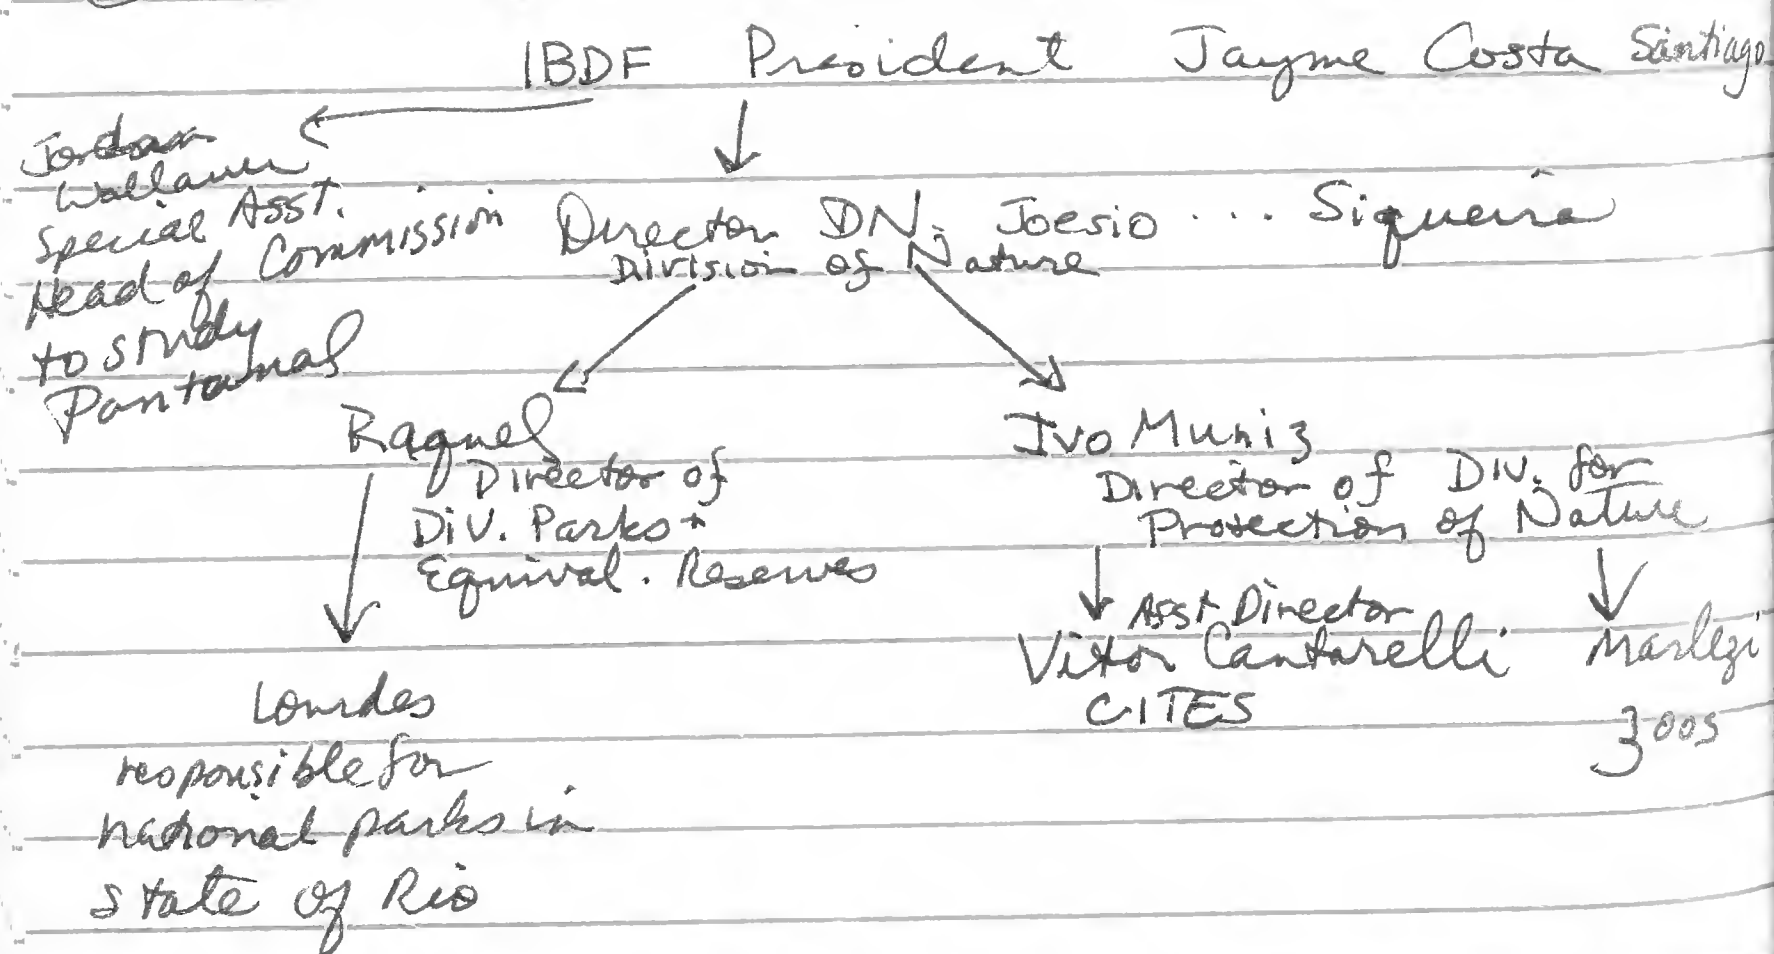 IBDF President Jayme Costa Santiago
Jordan
Wallauer
Special Asst.
Head of Commission
to study
Pantanal
Director DN. Joesio ... Siqueira
Division of Nature
Raquel
Director of
Div. Parks +
Equival. Reserves
Ivo Muniz
Director of Div. for
Protection of Nature
Asst Director
Vitor Cantarelli
CITES
Marlezi
zoos
Lourdes
responsible for
national parks in
state of Rio